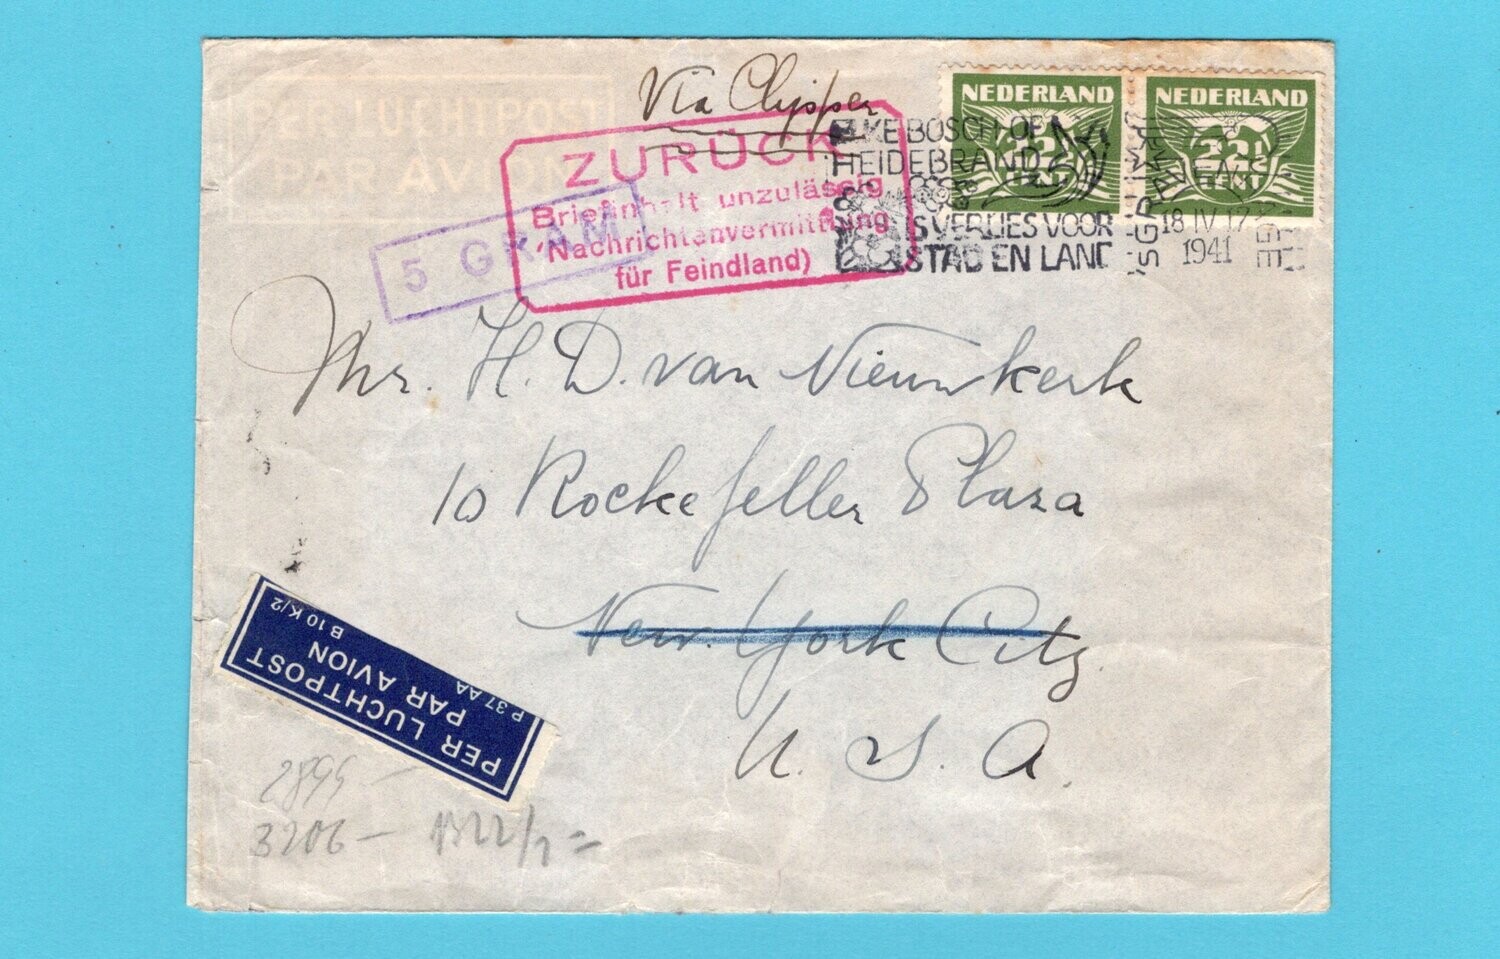 PER LUCHTPOST
PAR AVION
Via Clipper
NEDERLAND
22½
CENT
NEDERLAND
22½
CENT
ELKE BOSCH OF
HEIDEBRAND
IS VERLIES VOOR
STAD EN LAND
'SGRAVENHAGE
18 IV 17
1941
ZURÜCK
Briefinhalt unzulässig
(Nachrichtenvermittlung
für Feindland)
5 GRAM
Mr. H. D. van Nieuwkerk
10 Rockefeller Plaza
New York City.
U. S. A.
PER LUCHTPOST
PAR AVION
B 10 K/2
P 37 AA
2899 —
3206 —